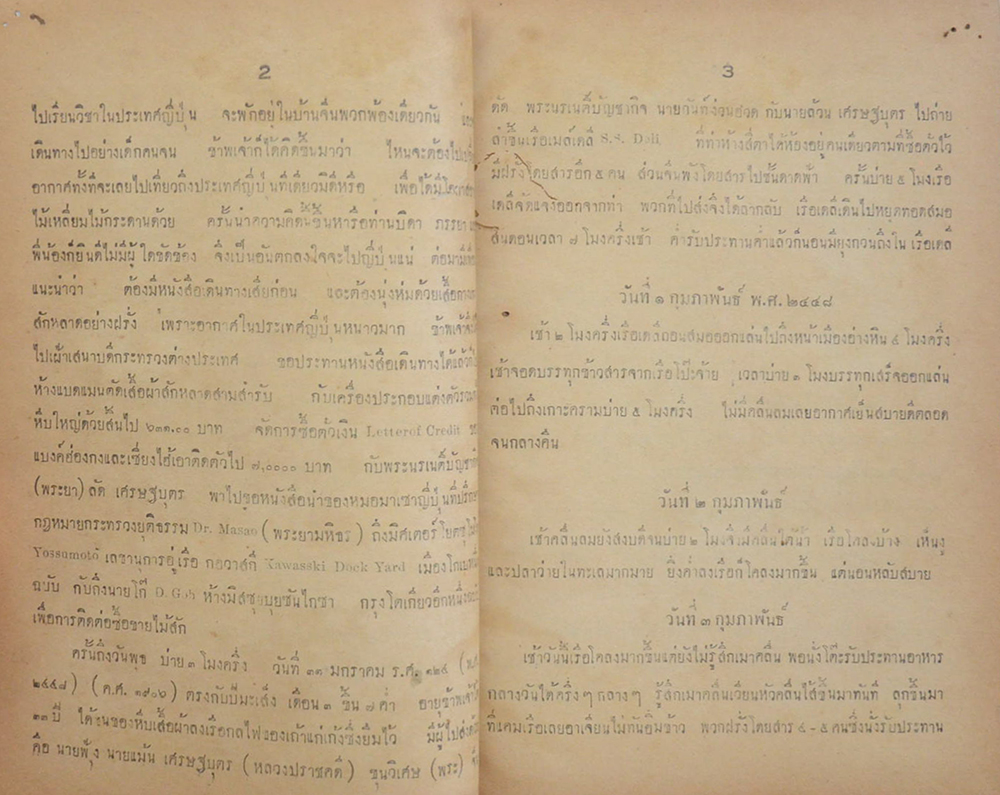 2
ไปเรียนวิชาในประเทศญี่ปุ่น จะพักอยู่ในบ้านจีนพวกพ้องเดียวกัน
เดินทางไปอย่างเด็กคนจน ข้าพเจ้าก็ได้คิดขึ้นมาว่า ไหนจะต้องไป
อากาศทั้งที่จะเลยไปเที่ยวถึงประเทศญี่ปุ่นทีเดียวมิดีหรือ เพื่อได้มีโอกาส
ไม้เหลี่ยมไม้กระดานด้วย ครั้นนำความคิดนี้ขึ้นหารือท่านบิดา ภรรยา
พี่น้องก็ยินดีไม่มีผู้ใดขัดข้อง จึงเป็นอันตกลงใจจะไปญี่ปุ่นแน่ ต่อมามี
แนะนำว่า ต้องมีหนังสือเดินทางเสียก่อน และต้องนุ่งห่มด้วยเสื้อกางเกง
สักหลาดอย่างฝรั่ง เพราะอากาศในประเทศญี่ปุ่นหนาวมาก ข้าพเจ้าจึง
ไปเฝ้าเสนาบดีกระทรวงต่างประเทศ ขอประทานหนังสือเดินทางได้แล้ว
ห้างแบดแมนตัดเสื้อผ้าสักหลาดสามสำรับ กับเครื่องประกอบแต่งตัว
หีบใหญ่ด้วยสิ้นไป ๖๓๓.๐๐ บาท จัดการซื้อตั๋วเงิน Letterof Credit
แบงค์ฮ่องกงและเซี่ยงไฮ้เอาติดตัวไป ๗,๐๐๐๐ บาท กับพระนรเนติบัญชากิจ
(พระยา) ลัด เศรษฐบุตร พาไปขอหนังสือนำของหมอมาเซาญี่ปุ่นที่ปรึกษา
กฎหมายกระทรวงยุติธรรม Dr. Masao (พระยามหิธร) ถึงมิศเตอร์
Yossumoto เลขานุการอู่เรือ กอวาสกี Kawasski Dock Yard เมืองโกเบ
ฉบับ กับถึงนายโก๊ D. Goh ห้างมิสซุบุยซันไกซา กรุงโตเกียวอีกหนึ่ง
เพื่อการติดต่อซื้อขายไม้สัก
ครั้นถึงวันพุธ บ่าย ๓ โมงครึ่ง วันที่ ๓๑ มกราคม ร.ศ. ๑๒๔
๒๔๔๘) (ค.ศ. ๑๙๐๖) ตรงกับปีมะเส็ง เดือน ๓ ขึ้น ๗ ค่ำ อายุข้าพเจ้า
๓๓ ปี ได้ขนของหีบเสื้อผ้าลงเรือกลไฟของเก๋าแก่เก้งซึ่งยืมไว้ มีผู้ไปส่ง
คือ นายพุ้ง นายแม้น เศรษฐบุตร (หลวงปราชคดี) ขุนวิเศษ (พระ)
3
ดัด พระนรเนติบัญชากิจ นายวันท์ง่วนฮวด กับนายล้วน เศรษฐบุตร ไปถ่าย
ลำขึ้นเรือเมล์เดลี S.S. Doll ที่ท่าห้างสี่ตาได้ห้องอยู่คนเดียวตามที่ซื้อตั๋วไว้
มีฝรั่งโดยสารอีก ๕ คน ส่วนจีนพึ่งโดยสารไปชั้นดาดฟ้า ครั้นบ่าย ๕ โมงเรือ
เดลีจัดแจงออกจากท่า พวกที่ไปส่งจึงได้ลากลับ เรือเดลีเดินไปหยุดทอดสมอ
สันดอนเวลา ๗ โมงครึ่งเช้า ค่ำรับประทานค่ำแล้วก็นอนมียุงกวนถึงในเรือเดลี
วันที่ ๑ กุมภาพันธ์ พ.ศ. ๒๔๔๘
เช้า ๒ โมงครึ่งเรือเดลีถอนสมอออกแล่นไปถึงหน้าเมืองอ่างหิน ๔ โมงครึ่ง
เช้าจอดบรรทุกข้าวสารจากเรือโป๊ะจ้าย เวลาบ่าย ๑ โมงบรรทุกเสร็จออกแล่น
ต่อไปถึงเกาะครามบ่าย ๕ โมงครึ่ง ไม่มีคลื่นลมเลยอากาศเย็นสบายดีตลอด
จนกลางคืน
วันที่ ๒ กุมภาพันธ์
เช้าคลื่นลมยังสงบดีจนบ่าย ๒ โมงเริ่มมีคลื่นใต้น้ำ เรือโคลงบ้าง เห็นงู
และปลาว่ายในทะเลมากมาย ยิ่งค่ำลงเรือก็โคลงมากขึ้น แต่นอนหลับสบาย
วันที่ ๓ กุมภาพันธ์
เช้าวันนี้เรือโคลงมากขึ้นแต่ยังไม่รู้สึกเมาคลื่น พอนั่งโต๊ะรับประทานอาหาร
กลางวันได้ครึ่ง ๆ กลาง ๆ รู้สึกเมาคลื่นเวียนหัวคลื่นไส้ขึ้นมาทันที ลุกขึ้นมา
ที่แคมเรือเลยอาเจียนไม่กินอิ่มข้าว พวกฝรั่งโดยสาร ๔ - ๕ คนซึ่งนั่งรับประทาน